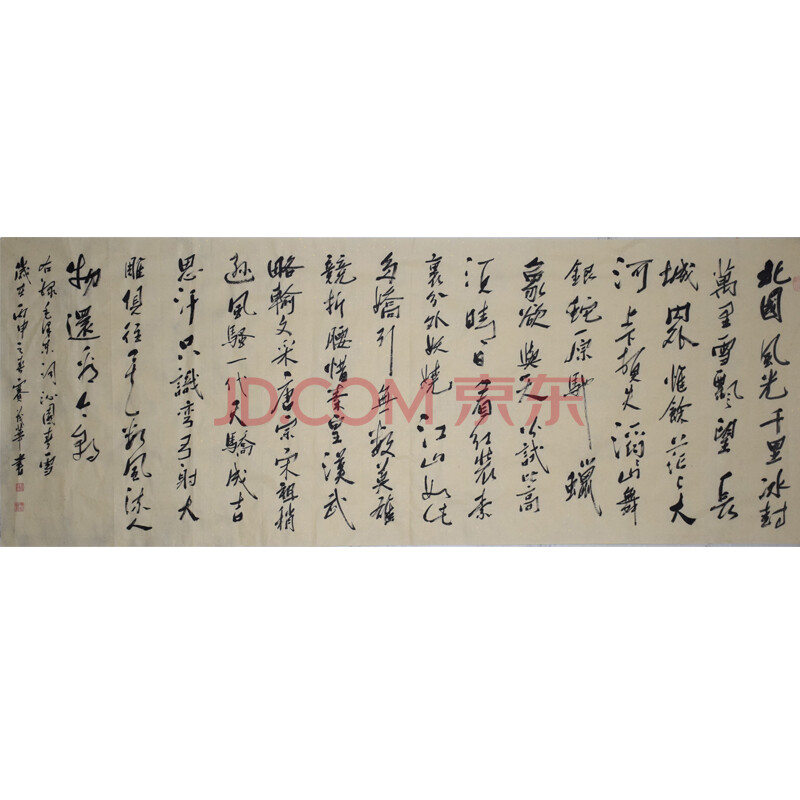 北國風光千里冰封
萬里雪飄望長
城內外惟餘茫々大
河上下頓失滔々山舞
銀蛇原馳蠟
象欲與天公試比高
須晴日看紅裝素
裹分外妖嬈江山如此
多嬌引無數英雄
競折腰惜秦皇漢武
略輸文采唐宗宋祖稍
遜風騷一代天驕成吉
思汗只識彎弓射大
雕俱往矣數風流人
物還看今朝
右錄毛澤東詞沁園春雪
歲在丙申之春 書
JD.COM 京东